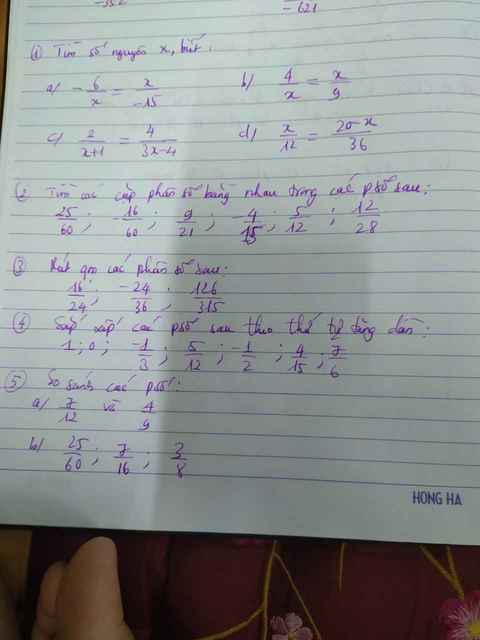 -352
-621
① Tìm số nguyên x, biết:
a/ -6/x = x/-15 b/ 4/x = x/9
c/ 2/x+1 = 4/3x-4 d/ x/12 = 20-x/36
② Tìm các cặp phân số bằng nhau trong các psố sau:
25/60; -16/60; 9/21; -4/15; 5/12; 12/28
③ Rút gọn các phân số sau:
16/24; -24/36; 126/315
④ Sắp xếp các psố sau theo thứ tự tăng dần:
1; 0; -1/3; 5/12; -1/2; 4/15; 7/6
⑤ So sánh các psố:
a/ 7/12 và 4/9
b/ 25/60; 7/16; 3/8
HONG HA